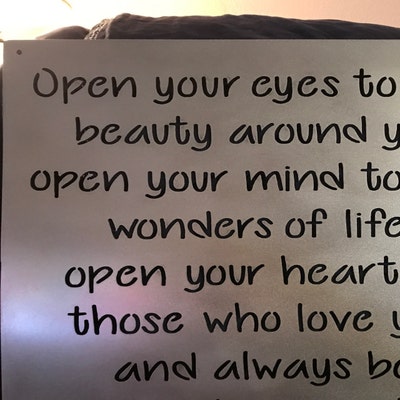 Open your eyes to
beauty around y
open your mind to
wonders of life
open your heart
those who love y
and always b